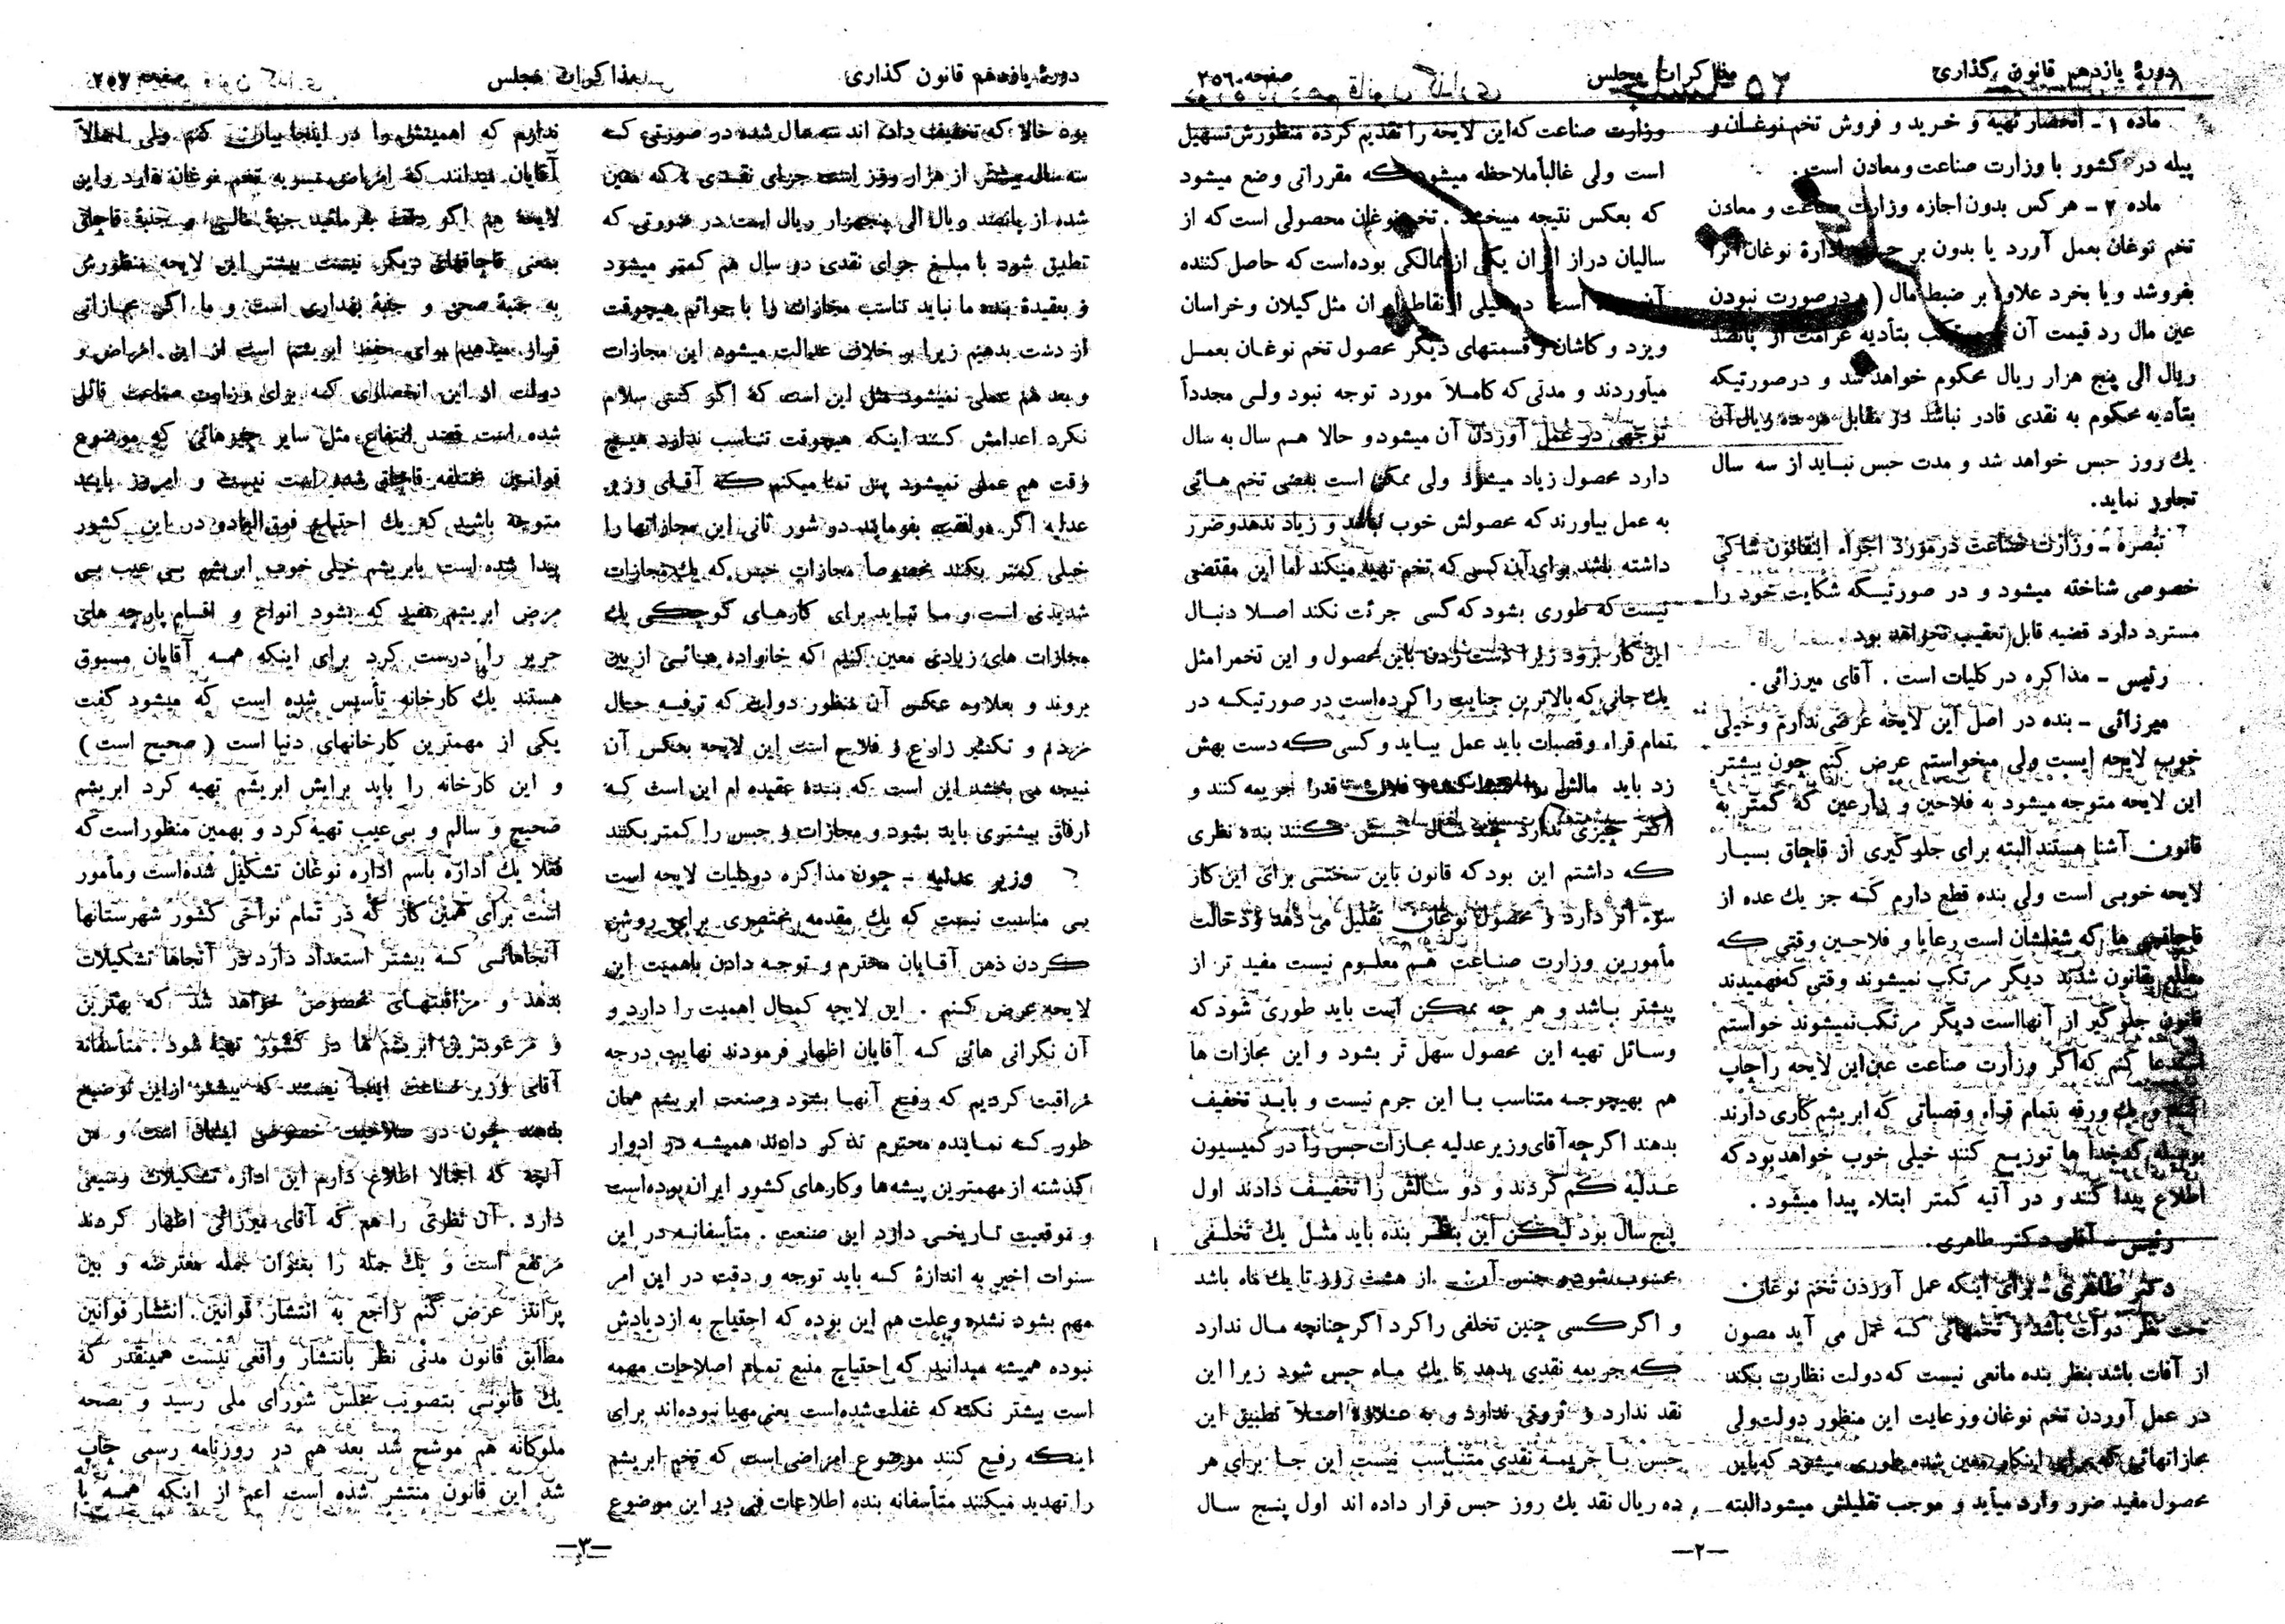 دورهٔ یازدهم قانون گذاری
مذاکرات مجلس
صفحه ۲۵۶
ماده ۱ ـ انحصار تهیه و خرید و فروش تخم نوغان و
پیله در کشور با وزارت صناعت و معادن است.
ماده ۲ ـ هر کس بدون اجازه وزارت صناعت و معادن
تخم نوغان بعمل آورد یا بدون بر ادارهٔ نوغان آنرا
بفروشد و یا بخرد علاوه بر ضبط مال ( و در صورت نبودن
عین مال رد قیمت آن بتأدیه غرامت از پانصد
ریال الی پنج هزار ریال محکوم خواهد شد و در صورتیکه
بتأدیه محکوم به نقدی قادر نباشد در مقابل هر ده ریال آن
یك روز حبس خواهد شد و مدت حبس نباید از سه سال
تجاوز نماید.
تبصره ـ وزارت صناعت در مورد اجراء اینقانون شاکی
خصوصی شناخته میشود و در صورتیکه شکایت خود را
مسترد دارد قضیه قابل تعقیب نخواهد بود.
رئیس ـ مذاکره در کلیات است . آقای میرزائی .
میرزائی ـ بنده در اصل این لایحه عرضی ندارم و خیلی
خوب لایحه ایست ولی میخواستم عرض کنم چون بیشتر
این لایحه متوجه میشود به فلاحین و زارعین که کمتر به
قانون آشنا هستند البته برای جلوگیری از قاچاق بسیار
لایحه خوبی است ولی بنده قطع دارم که جز یك عده از
قاچاقچی ها که شغلشان است رعایا و فلاحین وقتی که
قانون شدند دیگر مرتکب نمیشوند وقتی که فهمیدند
قانون جلوگیر از آنها است دیگر مرتکب نمیشوند خواستم
استدعا کنم که اگر وزارت صناعت عین این لایحه را چاپ
یك ورقه بتمام قراء و قصباتی که ابریشم کاری دارند
بوسیله کدخدا ها توزیع کنند خیلی خوب خواهد بود که
اطلاع پیدا کنند و در آتیه کمتر ابتلاء پیدا میشود .
رئیس ـ آقای دکتر طاهری .
دکتر طاهری ـ برای اینکه عمل آوردن تخم نوغان
تحت نظر دولت باشد و تخمهائی که عمل می آید مصون
از آفات باشد بنظر بنده مانعی نیست که دولت نظارت بکند
در عمل آوردن تخم نوغان و رعایت این منظور دولت ولی
مجازاتهائی که برای اینکار معین شده طوری میشود که باین
محصول مفید ضرر وارد میآید و موجب تقلیلش میشود البته
وزارت صناعت که این لایحه را تقدیم کرده منظورش تسهیل
است ولی غالباً ملاحظه میشود که مقرراتی وضع میشود
که بعکس نتیجه میبخشد . تخم نوغان محصولی است که از
سالیان دراز ایران یکی از ممالکی بوده است که حاصل کننده
آن است در خیلی از نقاط ایران مثل گیلان و خراسان
ویزد و کاشان و قسمتهای دیگر محصول تخم نوغان بعمل
میآوردند و مدتی که کاملاً مورد توجه نبود ولی مجدداً
توجهی در عمل آوردن آن میشود و حالا هم سال به سال
دارد محصول زیاد میشود ولی ممکن است بعضی تخم هائی
به عمل بیاورند که محصولش خوب نباشد و زیاد ندهد و ضرر
داشته باشد برای آن کسی که تخم تهیه میکند اما این مقتضی
نیست که طوری بشود که کسی جرئت نکند اصلا دنبال
این کار برود زیرا دست زدن باین محصول و این تخمرا مثل
یك جانی که بالاترین جنایت را کرده است در صورتیکه در
تمام قراء و قصبات باید عمل بیاید و کسی که دست بهش
زد باید مالش را ضبط کنند و فلان قدر جریمه کنند و
اگر چیزی ندارد چند سال حبسش کنند بنده نظری
که داشتم این بود که قانون باین سختی برای این کار
سوء اثر دارد و محصول نوغان تقلیل می دهد و دخالت
مأمورین وزارت صناعت هم معلوم نیست مفید تر از
پیشتر باشد و هر چه ممکن است باید طوری شود که
وسائل تهیه این محصول سهل تر بشود و این مجازات ها
هم بهیچوجه متناسب با این جرم نیست و باید تخفیف
بدهند اگر چه آقای وزیر عدلیه مجازات حبس را در کمیسیون
عدلیه کم کردند و دو سالش را تخفیف دادند اول
پنج سال بود لیکن این بنظر بنده باید مثل یك تخلفی
محسوب شود و حبس آن از هشت روز تا یك ماه باشد
و اگر کسی چنین تخلفی را کرد اگر چنانچه مال ندارد
که جریمه نقدی بدهد تا یك ماه حبس شود زیرا این
نقد ندارد و ثروتی ندارد و به علاوه اصلاً تطبیق این
حبس با جریمه نقدی متناسب نیست این جا برای هر
ده ریال نقد یك روز حبس قرار داده اند اول پنج سال
ـ۲ـ
دورهٔ یازدهم قانون گذاری
مذاکرات مجلس
صفحه ۲۵۷
بوده حالا که تخفیف داده اند سه سال شده در صورتی که
سه سال بیشتر از هزار روز است جزای نقدی که معین
شده از پانصد ریال الی پنجهزار ریال است در صورتی که
تطبیق شود با مبلغ جزای نقدی دو سال هم کمتر میشود
و بعقیده بنده ما نباید تناسب مجازات را با جرائم هیچوقت
از دست بدهیم زیرا بر خلاف عدالت میشود این مجازات
و بعد هم عملی نمیشود مثل این است که اگر کسی سلام
نکرد اعدامش کنند اینکه هیچوقت تناسب ندارد هیچ
وقت هم عملی نمیشود پس تمنا میکنم که آقای وزیر
عدلیه اگر موافقت بفرمایند در شور ثانی این مجازاتها را
خیلی کمتر بکنند مخصوصاً مجازات حبس که یك مجازات
شدیدی است و ما نباید برای کارهای کوچکی یك
مجازات های زیادی معین کنیم که خانواده هائی از بین
بروند و بعلاوه عکس آن منظور دولت که ترفیه حال
مردم و تکثیر زارع و فلاح است این لایحه بعکس آن
نتیجه می بخشد این است که بنده عقیده ام این است که
ارفاق بیشتری باید بشود و مجازات و حبس را کمتر بکنند
وزیر عدلیه ـ چون مذاکره در کلیات لایحه است
بی مناسبت نیست که یك مقدمه مختصری برای روشن
کردن ذهن آقایان محترم و توجه دادن باهمیت این
لایحه عرض کنم . این لایحه کمال اهمیت را دارد و
آن نگرانی هائی که آقایان اظهار فرمودند نهایت درجه
مراقبت کردیم که رفع آنها بشود و صنعت ابریشم همان
طور که نماینده محترم تذکر دادند همیشه در ادوار
گذشته از مهمترین پیشه ها و کارهای کشور ایران بوده است
و موقعیت تاریخی دارد این صنعت . متأسفانه در این
سنوات اخیر به اندازهٔ که باید توجه و دقت در این امر
مهم بشود نشده و علت هم این بوده که احتیاج به ازدیادش
نبوده همیشه میدانید که احتیاج منبع تمام اصلاحات مهمه
است بیشتر نکته که غفلت شده است یعنی مهیا نبوده اند برای
اینکه رفع کنند موضوع امراضی است که تخم ابریشم
را تهدید میکنند متأسفانه بنده اطلاعات فنی در این موضوع
ندارم که اهمیتش را در اینجا بیان کنم ولی اجمالاً
آقایان میدانند که امراض مسریه تخم نوغان دارد و این
لایحه هم اگر دقت بفرمائید جنبهٔ مالی و جنبهٔ قاچاق
بمعنی قاچاقهای دیگر نیست بیشتر این لایحه منظورش
به جنبهٔ صحی و جنبهٔ بهداری است و ما اگر مجازاتی
قرار میدهیم برای حفظ ابریشم است از این امراض و
دولت از این انحصاری که برای وزارت صناعت قائل
شده است قصد انتفاع مثل سایر چیزهائی که موضوع
قوانین مختلفه قاچاق شده است نیست و امروز باید
متوجه باشید که یك احتیاج فوق العاده در این کشور
پیدا شده است بابریشم خیلی خوب ابریشم بی عیب بی
مرض ابریشم مفید که بشود انواع و اقسام پارچه های
حریر را درست کرد برای اینکه همه آقایان مسبوق
هستند یك کارخانه تأسیس شده است که میشود گفت
یکی از مهمترین کارخانهای دنیا است ( صحیح است )
و این کارخانه را باید برایش ابریشم تهیه کرد ابریشم
صحیح و سالم و بی عیب تهیه کرد و بهمین منظور است که
فعلا یك اداره باسم اداره نوغان تشکیل شده است و مأمور
است برای همین کار که در تمام نواحی کشور شهرستانها
آنجاهائی که بیشتر استعداد دارد در آنجاها تشکیلات
بدهد و مراقبتهای مخصوص خواهد شد که بهترین
و مرغوبترین ابریشم ها در کشور تهیه شود . متأسفانه
آقای وزیر صناعت اینجا نیستند که بیشتر از این توضیح
بدهند چون در صلاحیت خصوصی ایشان است و من
آنچه که اجمالا اطلاع دارم این اداره تشکیلات وسیعی
دارد . آن نظرتی را هم که آقای میرزائی اظهار کردند
مرتفع است و یك جمله را بعنوان جمله معترضه و بین
پرانتز عرض کنم راجع به انتشار قوانین . انتشار قوانین
مطابق قانون مدنی نظر بانتشار واقعی نیست همینقدر که
یك قانونی بتصویب مجلس شورای ملی رسید و بصحه
ملوکانه هم موشح شد بعد هم در روزنامه رسمی چاپ
شد این قانون منتشر شده است اعم از اینکه همه با
ـ۳ـ